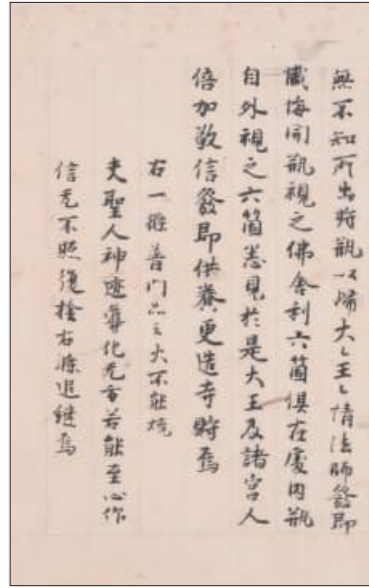 無不知所出將瓶以歸大〻王〻請法師發即
懺悔開瓶視之佛舍利六箇俱在處内瓶
自外視之六箇悉見於是大王及諸宮人
倍加敬信發即供養更造寺貯焉
右一條普門品云火不能燒
夫聖人神迹導化无方若能至心作
信无不照復捡右條追継焉